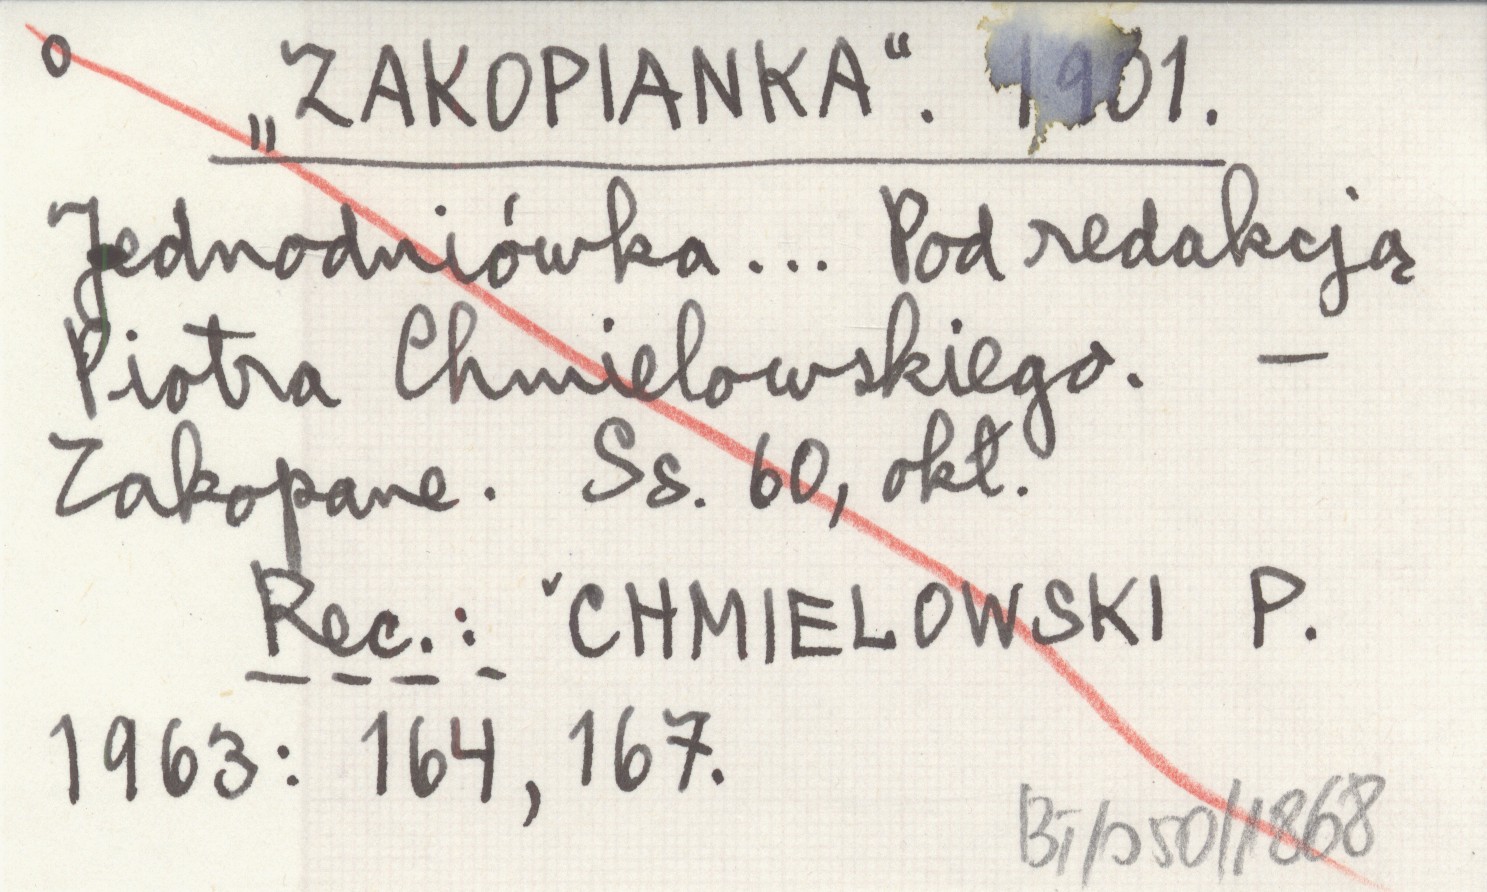 o „ZAKOPIANKA“. 1901.
Jednodniówka... Pod redakcją
Piotra Chmielowskiego. —
Zakopane. Ss. 60, okł.
Rec.: CHMIELOWSKI P.
1963: 164, 167.